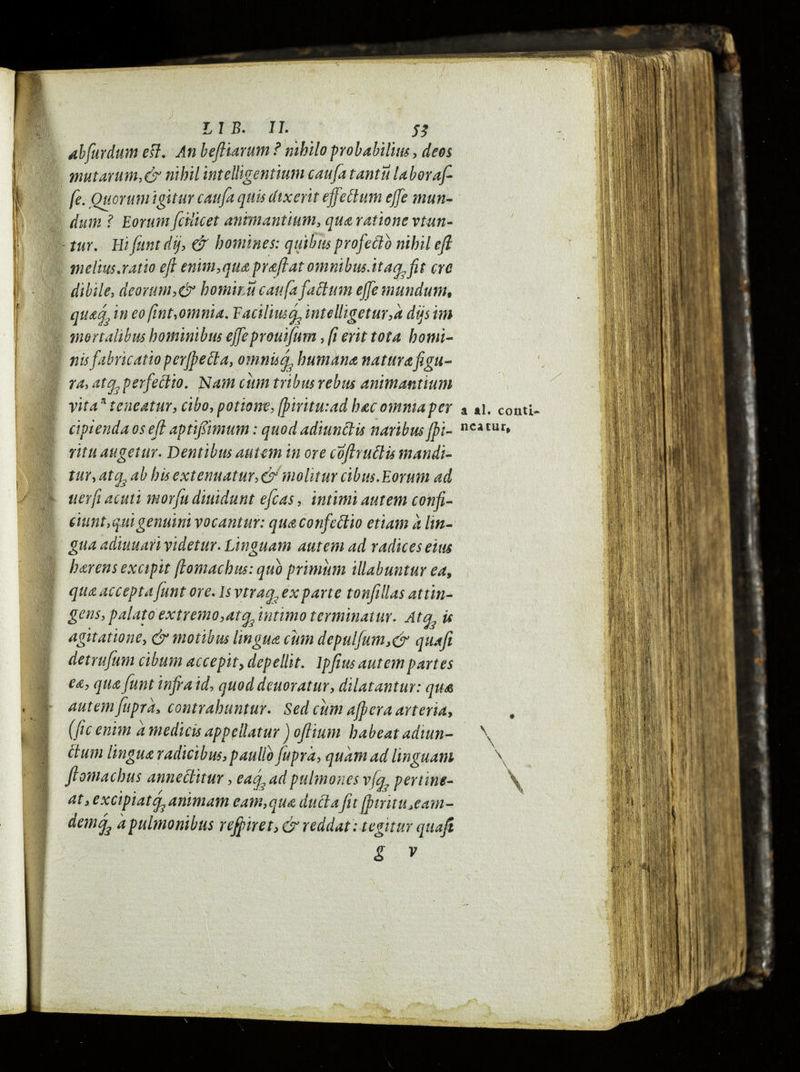 LIB. II. 53
abſurdum eſt. An beſtiarum? nihilo probabilius, deos
mutarum, & nihil intelligentium cauſa tantū laboraſ-
ſe. Quorum igitur cauſa quis dixerit effectum eſſe mun-
dum? Eorum ſcilicet animantium, quæ ratione vtun-
tur. Hi ſunt dij, & homines: quibus profectò nihil eſt
melius. ratio eſt enim, quæ præſtat omnibus. itaq; fit cre
dibile, deorum, & hominū cauſa factum eſſe mundum,
quæq; in eo ſint, omnia. Faciliusq; intelligetur, à dijs im
mortalibus hominibus eſſe prouiſum, ſi erit tota homi-
nis fabricatio perſpecta, omnisq; humanæ naturæ figu-
ra, atq; perfectio. Nam cùm tribus rebus animantium
vita ª teneatur, cibo, potione, ſpiritu: ad hæc omnia per
cipienda os eſt aptiſsimum: quod adiunctis naribus ſpi-
ritu augetur. Dentibus autem in ore cōſtructis mandi-
tur, atq; ab his extenuatur, & molitur cibus. Eorum ad
uerſi acuti morſu diuidunt eſcas, intimi autem confi-
ciunt, qui genuini vocantur: quæ confectio etiam à lin-
gua adiuuari videtur. Linguam autem ad radices eius
hærens excipit ſtomachus: quò primùm illabuntur ea,
quæ accepta ſunt ore. Is vtraq; ex parte tonſillas attin-
gens, palato extremo, atq; intimo terminatur. Atq; is
agitatione, & motibus linguæ cùm depulſum, & quaſi
detruſum cibum accepit, depellit. Ipſius autem partes
eæ, quæ ſunt infra id, quod deuoratur, dilatantur: quæ
autem ſuprà, contrahuntur. Sed cùm aſpera arteria,
(ſic enim à medicis appellatur) oſtium habeat adiun-
ctum linguæ radicibus, paullò ſuprà, quàm ad linguam
ſtomachus annectitur, eaq; ad pulmones vſq; pertine-
at, excipiatq; animam eam, quæ ducta ſit ſpiritu, eam-
demq; à pulmonibus reſpiret, & reddat: tegitur quaſi
g v
a al. conti-
neatur,